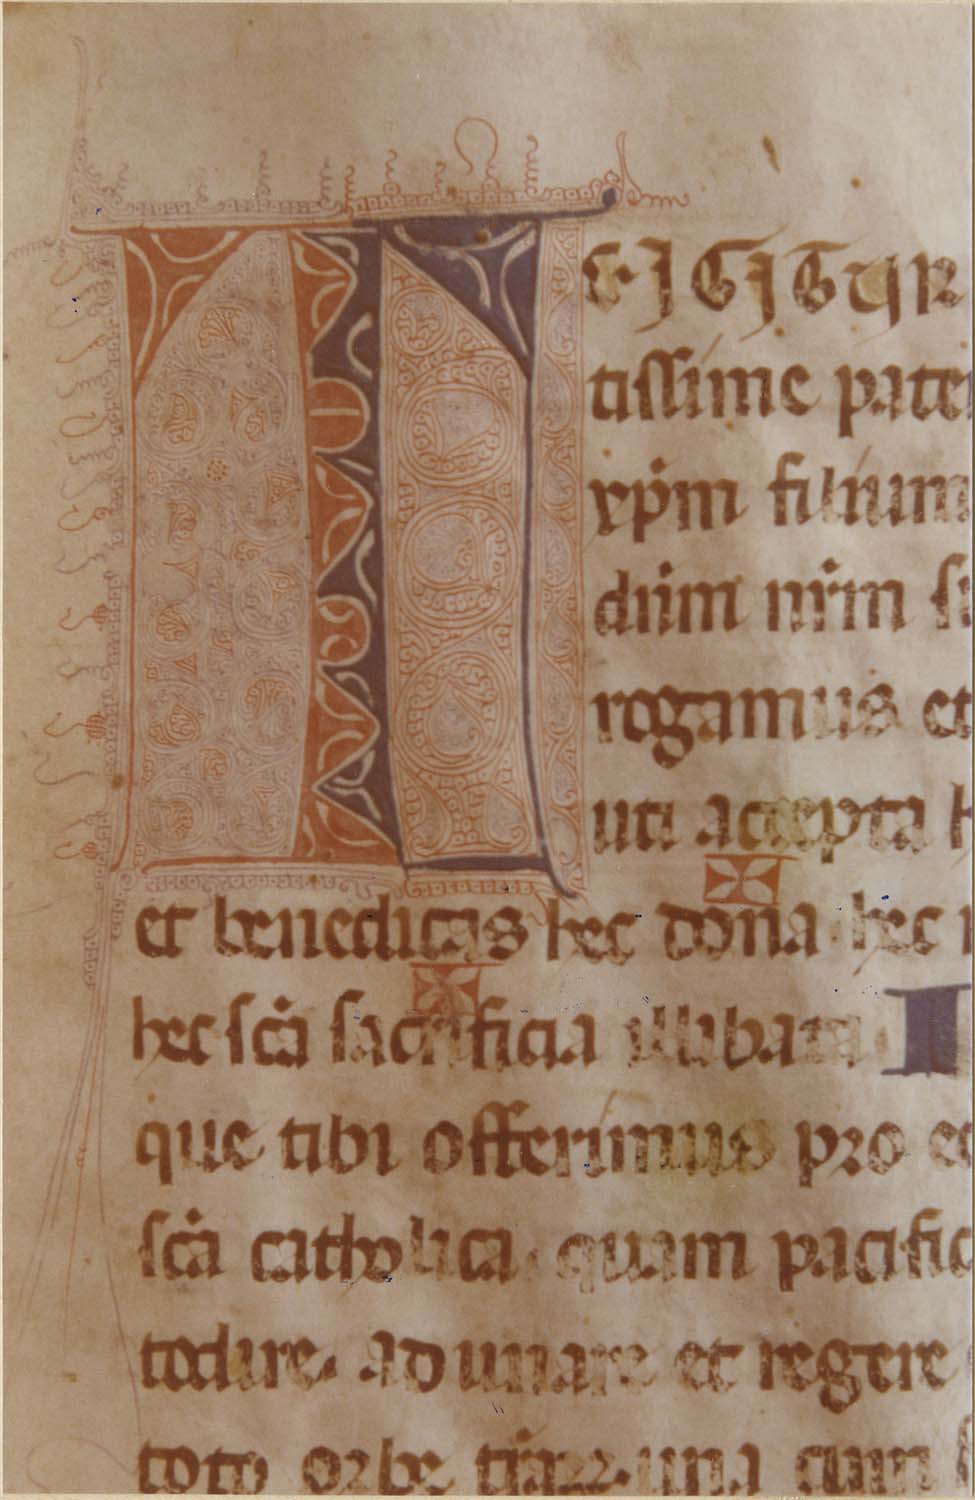 TE·IGITUR
tissime pate
xp̄m filium
dn̄m nr̄m su
rogamus et
uti accepta h
et benedicas hec dona hec
hec sc̄a sacrificia illibata I
que tibi offerimus pro ec
sc̄a catholica, quam pacific
todire, adunare et regere
toto orbe tr̄arꝝ. una cum f